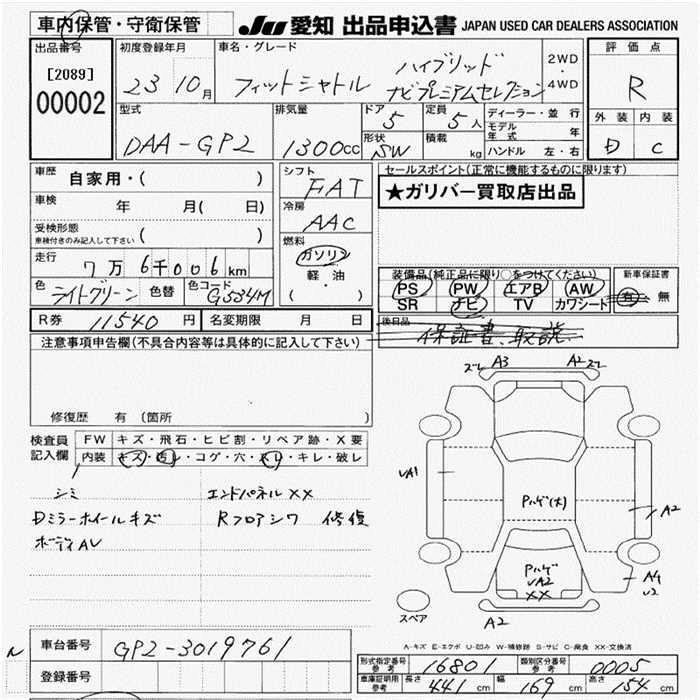 車内保管・守衛保管 JU 愛知 出品申込書 JAPAN USED CAR DEALERS ASSOCIATION
出品番号 初度登録年月 車名・グレード 評価点
[2089] 23 10月 フィットシャトル ハイブリッド 2WD・4WD R
00002 ナビプレミアムセレクション
型式 排気量 ドア 5 定員 5人 ディーラー・並行 外装 内装
DAA-GP2 1300cc 形状 SW 積載 kg モデル年式 年 D C
ハンドル 左・右
車歴 自家用・( ) シフト FAT セールスポイント(正常に機能するものに限ります)
車検 年 月( 日) 冷房 AAC ★ガリバー買取店出品
受検形態 ( )
車検付きのみ記入して下さい
燃料 ガソリン 軽・油 ( )
走行 7万6千006km 装備品(純正品に限り○をつけてください) 新車保証書
色 ライトグリーン 色替 色コード G534M PS PW エアB AW 有 無
SR ナビ TV カワシート
R券 11540 円 名変期限 月 日 後日品 保証書、取説
注意事項申告欄(不具合内容等は具体的に記入して下さい)
ズレ A3 A2 ズレ
修復歴 有 (箇所
検査員記入欄 FW キズ・飛石・ヒビ割・リペア跡・X要
内装 キズ・汚レ・コゲ・穴・スレ・キレ・破レ
UA1
シミ エンドパネルXX Pハゲ(大) A2
Dミラーホイールキズ Rフロアシワ 修復
ボディAU
Pハゲ
UA2
XX
A4
U2
スペア A2
A-キズ E-エクボ U-凹み W-補修跡 S-サビ C-腐食 XX-交換済
車台番号 GP2-3019761
型式指定番号 参考 16801 類別区分番号 参考 0005
登録番号 車庫証明用 参考 長さ 441cm 幅 169cm 高さ 154cm